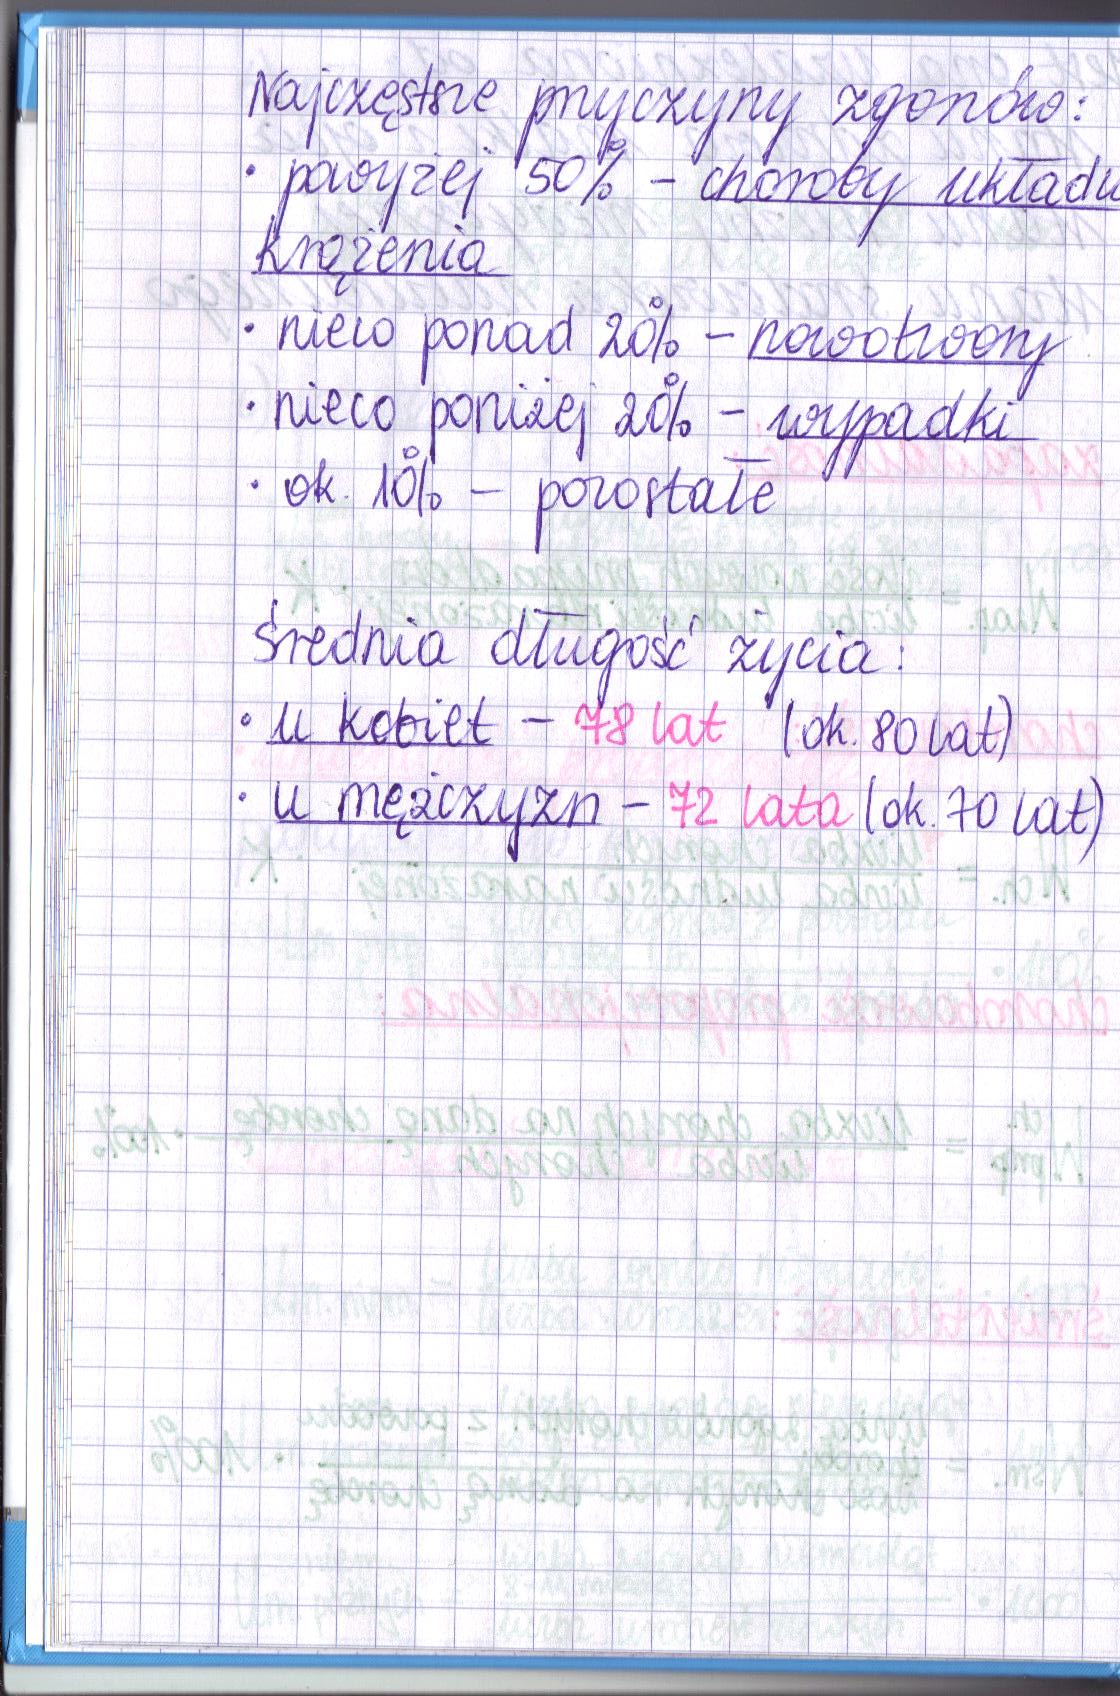 Najczęstsze przyczyny zgonów:
• powyżej 50% – choroby układu
krążenia
• nieco ponad 20% – nowotwory
• nieco poniżej 20% – wypadki
• ok. 10% – pozostałe
Średnia długość życia:
• u kobiet – 78 lat (ok. 80 lat)
• u mężczyzn – 72 lata (ok. 70 lat)